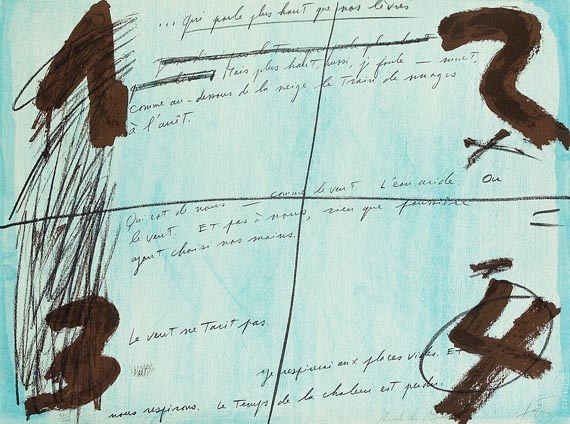 1
2
... qui parle plus haut que nos livres
Mais plus haut, aussi, je parle — muet,
comme au-dessous de la neige le train de nuages
à l'arrêt.
Qui est de nous — comme le vent. L'eau acide Ou
le vent. Et pas à nous, rien que poussière
ayant choisi nos mains.
=
Le vent ne tarit pas.
3
4
je respirerai aux places vides. Et
nous respirons. Le temps de la chaleur est perdu.